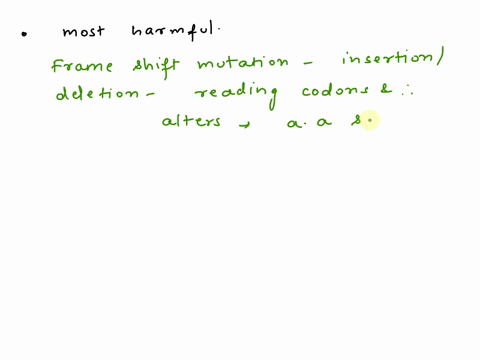 • most harmful.
Frame shift mutation - insertion/
deletion - reading codons & ∴
alters → a.a s